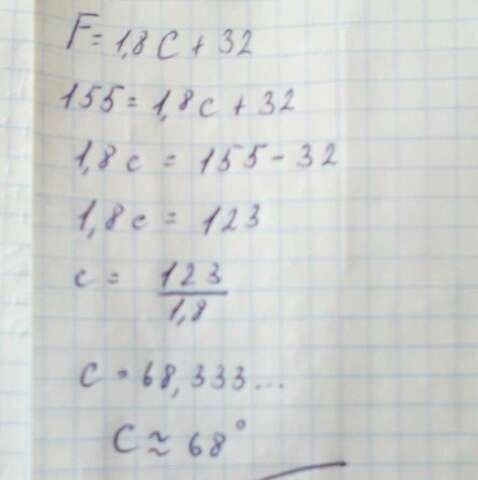 F = 1,8C + 32
155 = 1,8c + 32
1,8c = 155 - 32
1,8c = 123
c = 123/1,8
C = 68,333...
C ≈ 68°